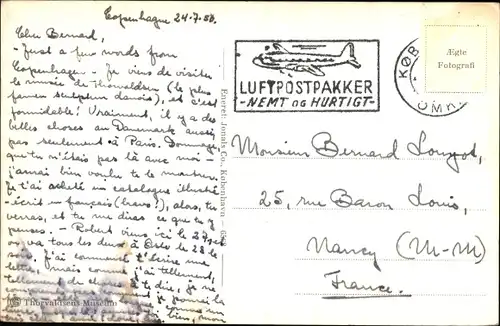 Copenhague 24-7-50.
Cher Bernard,
- Just a few words from
Copenhagen - Je viens de visiter
le musée de Thorwaldsen (le plus
fameux sculpteur danois), et c'est
formidable! Vraiment, il y a des
belles choses au Danemark aussi,
pas seulement à Paris. Dommage,
que tu n'étais pas là avec moi -
j'aurais bien voulu te le montrer.
Je t'ai acheté un catalogue illustré
- écrit en français (bravo!), alors, tu
verras, et tu me diras ce que tu y
penses. - Robert viens ici le 27 et
on va tous les deux à Oslo le 28 le
soir. J'ai commencé t'écrire une
lettre, mais comme j'ai tellement,
tellement de choses à te dire, je ne
pas comment je
Thorvaldsens Museum
Eneret
Co., København
LUFTPOSTPAKKER
-NEMT OG HURTIGT-
KØB
OMK.
Ægte
Fotografi
Monsieur Bernard
25, rue Baron Louis,
Nancy (M-M)
France.